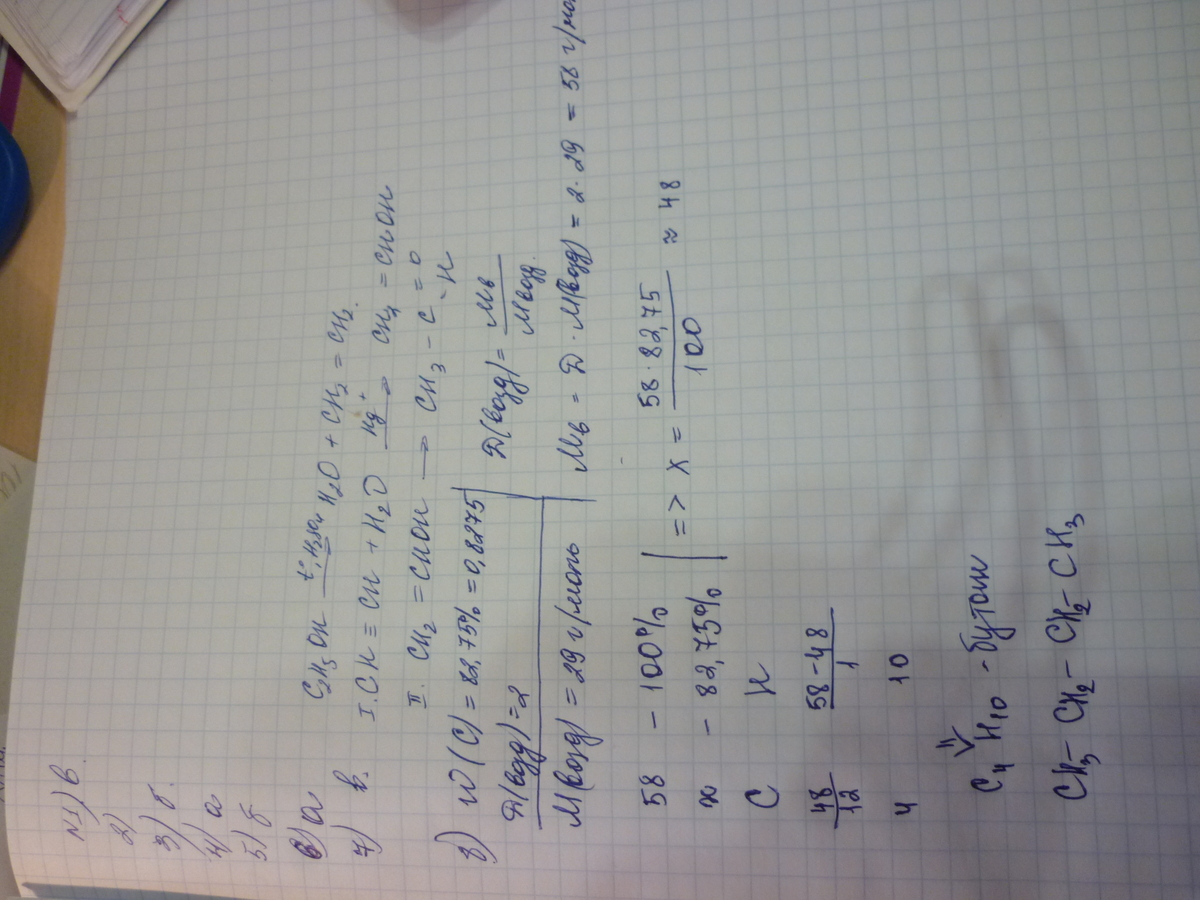 N1) в.
2)
3) б.
4) а
5) б
6) а C₂H₅OH t°, H₂SO₄ H₂O + CH₂ = CH₂.
7) в. I. CH ≡ CH + H₂O Hg⁺ → CH₂ = CHOH
II. CH₂ = CHOH → CH₃ – C = O
- H
8) W(C) = 82,75% = 0,8275
D(возд) = 2
M(возд) = 29 г/моль
D(возд) = Mв / Mвозд.
Mв = D · M(возд) = 2 · 29 = 58 г/мо
58 – 100%
x – 82,75% => x = 58·82,75 / 100 ≈ 48
C H
48/12 58–48/1
4 10
C₄H₁₀ - бутан
CH₃ – CH₂ – CH₂ – CH₃